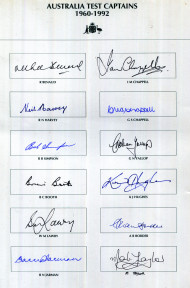 AUSTRALIA TEST CAPTAINS
1960-1992
R BENAUD
I M CHAPPELL
R N HARVEY
G S CHAPPELL
R B SIMPSON
G N YALLOP
B C BOOTH
K J HUGHES
W M LAWRY
A R BORDER
B N JARMAN